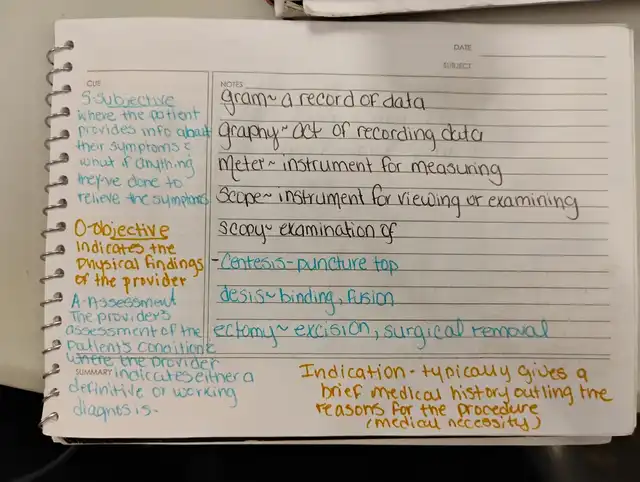 DATE
SUBJECT
CUE
S-Subjective
where the patient
provides info about
their symptoms &
what if anything
they've done to
relieve the symptoms
O-Objective
indicates the
physical findings
of the provider
A-Assessment
The provider's
assessment of the
patient's condition &
where the provider
indicates either a
definitive or working
diagnosis-
NOTES
gram~ a record of data
graphy~ act of recording data
meter~ instrument for measuring
Scope~ instrument for viewing or examining
scopy~ examination of
-Centesis-puncture tap
desis~ binding, fusion
ectomy~ excision, surgical removal
SUMMARY
Indication- typically gives a
brief medical history outling the
reasons for the procedure
(medical necessity)